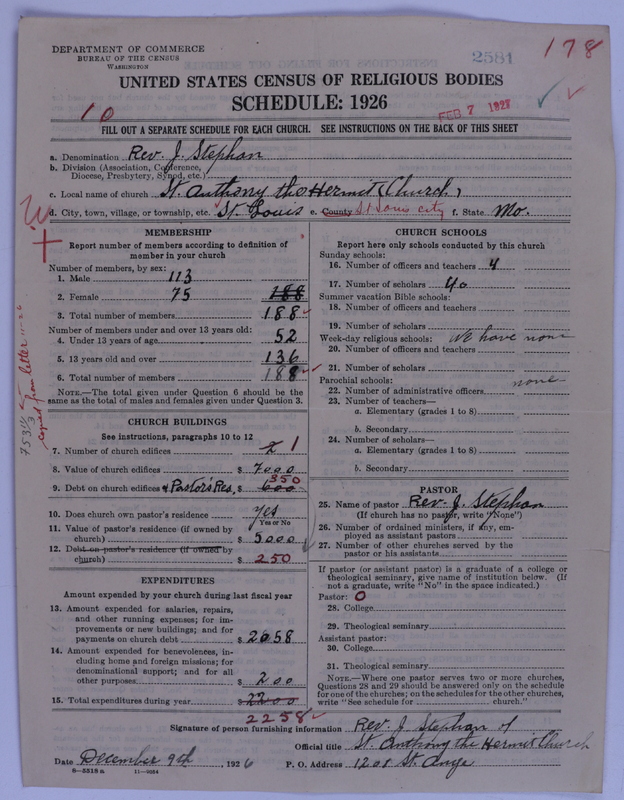 DEPARTMENT OF COMMERCE
BUREAU OF THE CENSUS
WASHINGTON
2581
178
UNITED STATES CENSUS OF RELIGIOUS BODIES
SCHEDULE: 1926
10
FEB 7 1927
FILL OUT A SEPARATE SCHEDULE FOR EACH CHURCH. SEE INSTRUCTIONS ON THE BACK OF THIS SHEET
a. Denomination Rev. J. Stephan
b. Division (Association, Conference, Diocese, Presbytery, Synod, etc.)
c. Local name of church St. Anthony the Hermit (Church)
d. City, town, village, or township, etc. St. Louis e. County St Louis city f. State Mo.
MEMBERSHIP
Report number of members according to definition of
member in your church
Number of members, by sex:
1. Male 113
2. Female 75 188
3. Total number of members 188
Number of members under and over 13 years old:
4. Under 13 years of age 52
5. 13 years old and over 136
6. Total number of members 188
NOTE.—The total given under Question 6 should be
same as the total of males and females given under Question 3.
copied from letter 11-26
CHURCH BUILDINGS
See instructions, paragraphs 10 to 12
7. Number of church edifices 2 1
8. Value of church edifices $ 7000
350
9. Debt on church edifices & Pastor's Res. $ 600
10. Does church own pastor's residence yes
Yes or No
11. Value of pastor's residence (if owned by
church) $ 5000
12. Debt on pastor's residence (if owned by
church) $ 250
EXPENDITURES
Amount expended by your church during last fiscal year
13. Amount expended for salaries, repairs,
and other running expenses; for im-
provements or new buildings; and for
payments on church debt $ 2058
14. Amount expended for benevolences, in-
cluding home and foreign missions; for
denominational support; and for all
other purposes $ 200
15. Total expenditures during year $ 2200
2258
CHURCH SCHOOLS
Report here only schools conducted by this church
Sunday schools:
16. Number of officers and teachers 4
17. Number of scholars 40
Summer vacation Bible schools:
18. Number of officers and teachers
19. Number of scholars
Week-day religious schools: We have none
20. Number of officers and teachers
21. Number of scholars
Parochial schools: none
22. Number of administrative officers
23. Number of teachers—
a. Elementary (grades 1 to 8)
b. Secondary
24. Number of scholars—
a. Elementary (grades 1 to 8)
b. Secondary
PASTOR
25. Name of pastor Rev. J. Stephan
(If church has no pastor, write "None")
26. Number of ordained ministers, if any, em-
ployed as assistant pastors
27. Number of other churches served by the
pastor or his assistants
If pastor (or assistant pastor) is a graduate of a college or
theological seminary, give name of institution below. (If
not a graduate, write "No" in the space indicated.)
Pastor: O
28. College
29. Theological seminary
Assistant pastor:
30. College
31. Theological seminary
NOTE.—Where one pastor serves two or more churches,
Questions 28 and 29 should be answered only on the schedule
for one of the churches; on the schedules for the other churches,
write "See schedule for church."
Signature of person furnishing information Rev. J Stephan of
Official title St. Anthony the Hermit Church
Date December 9th, 1926 P. O. Address 1208 St. Ange
8—5318 a 11—9664